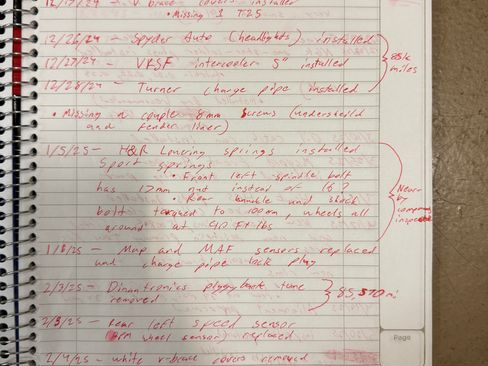 12/17/24 - V brace covers installed
• Missing 1 T25
12/26/24 - Spyder Auto (headlights) installed
12/27/24 - VRSF intercooler 5" installed
85k miles
12/28/24 - Turner charge pipe installed
• Missing a couple 8mm screws (undersheild
and fender liner)
1/5/25 - H&R Lowring springs installed
Sport springs
• Front left spindle bolt
has 17mm nut instead of 16?
• Rear knuckle and shock
bolt torqued to 100nm, wheels all
around at 90 Ft lbs
Near by
1/8/25 - Map and MAF sensors replaced
and charge pipe lock plug
2/3/25 - Dinantronics piggyback tune
removed
85,370 mi
2/3/25 - Rear left speed sensor
wheel sensor) replaced
Page
2/4/25 - white v-brace covers removed